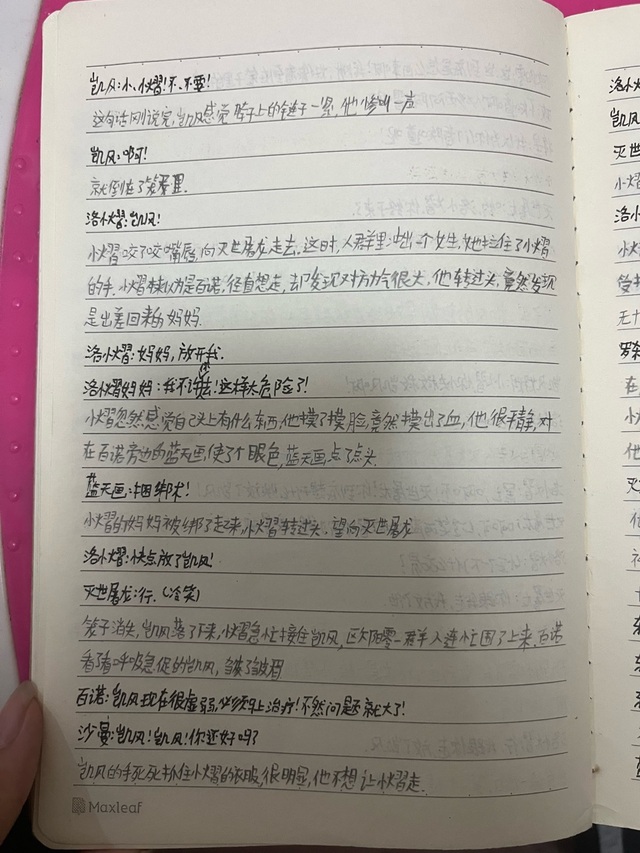 凯风:小、小熠!不、不要!
这句话刚说完,凯风感觉脖子上的链子一紧,他惨叫一声
凯风:啊!
就倒在了笼子里.
洛小熠:凯风!
小熠咬了咬嘴唇,向灭世屠龙走去,这时,人群里冲出一个女生,她拉住了小熠
的手.小熠本以为是百诺,径自想走,却发现对方力气很大,他转过头,竟然发现
是出差回来的妈妈.
洛小熠:妈妈,放开我.
洛小熠妈妈:我不许去!这样太危险了!
小熠忽然感觉自己头上有什么东西,他摸了摸脸,竟然摸出了血,他很平静,对
在百诺旁边的蓝天画使了个眼色,蓝天画点了点头.
蓝天画:捆绑术!
小熠的妈妈被绑了起来,小熠转过头.望向灭世屠龙
洛小熠:快点放了凯风!
灭世屠龙:行.(冷笑)
笼子消失,凯风落了下来,小熠急忙接住凯风,区太阳零一群人连忙围了上来,百诺
看了看呼吸急促的凯风,皱了皱眉
百诺:凯风现在很虚弱,必须马上治疗!不然问题就大了!
沙曼:凯风!凯风!你还好吗?
凯风的手死死抓住小熠的衣服,很明显,他不想让小熠走.
Maxleaf
凯风
灭世
小熠
洛小熠
小熠